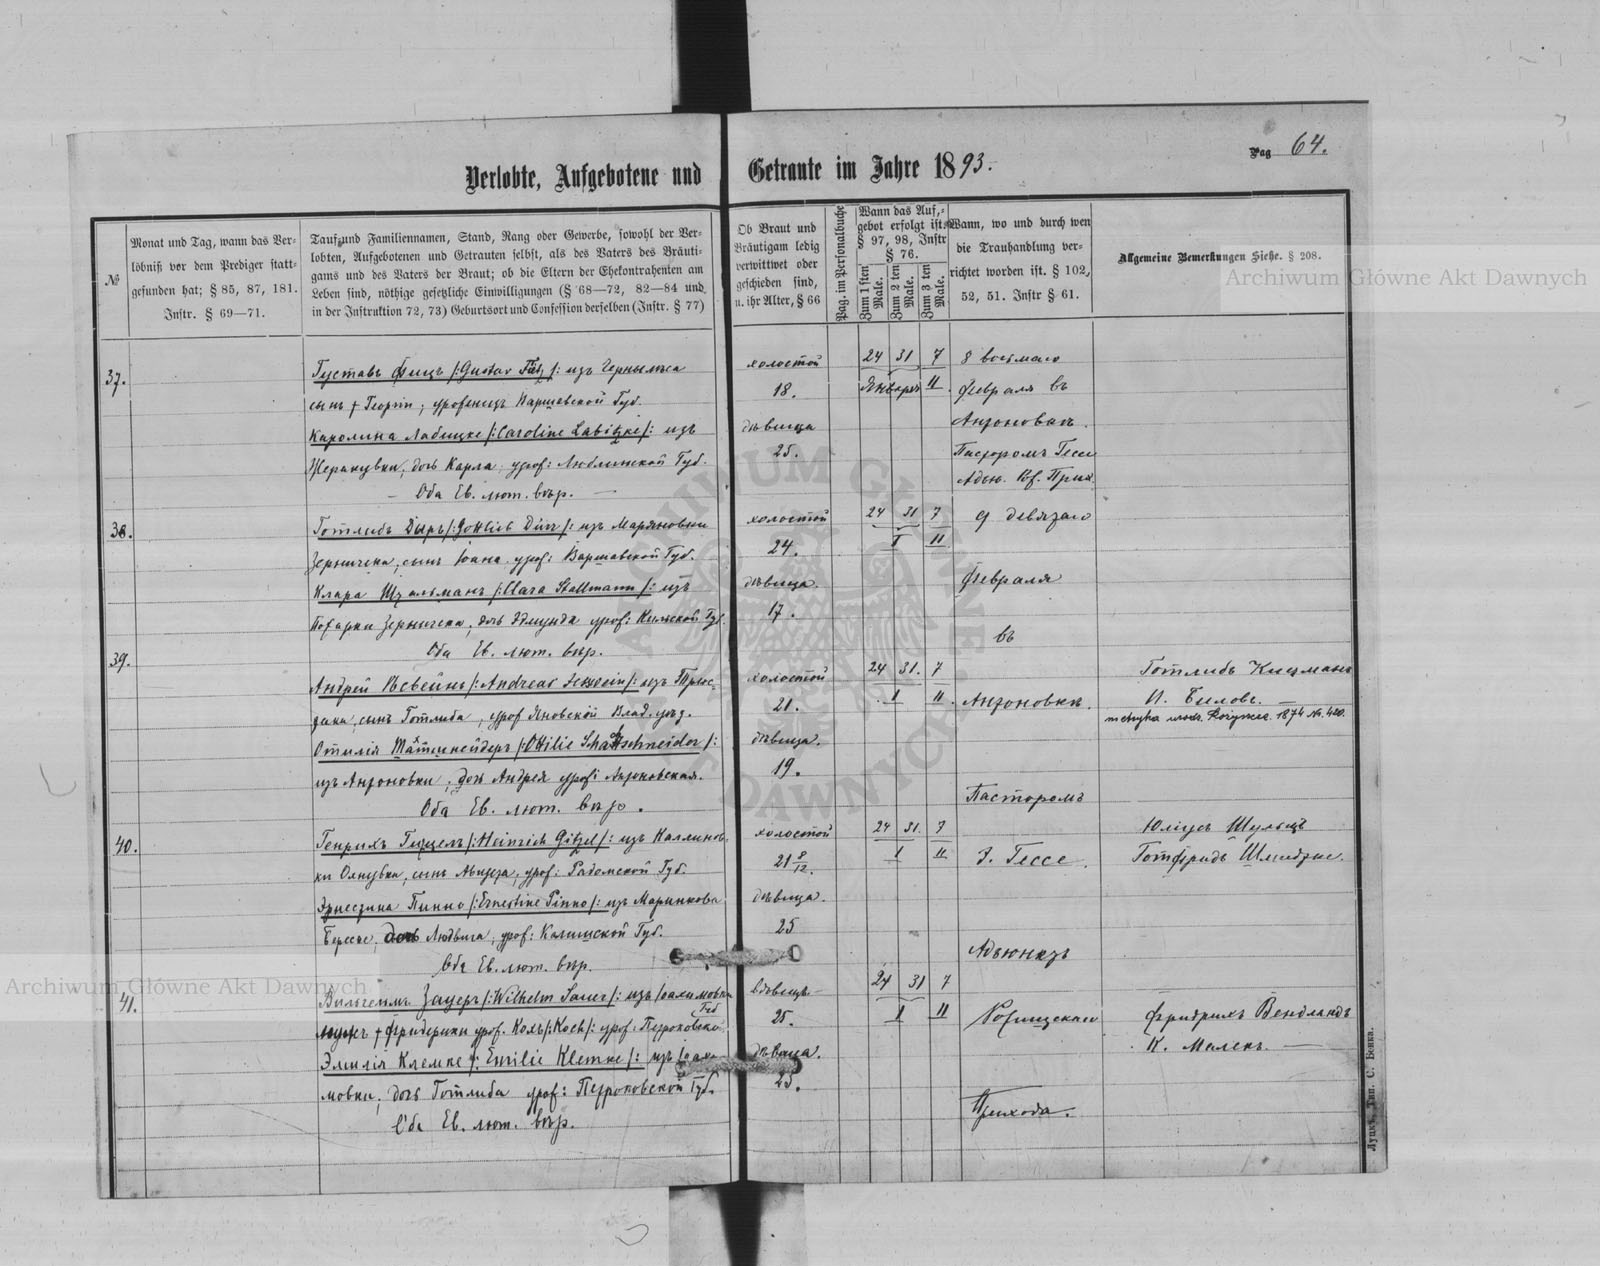 Pag 64.
Verlobte, Aufgebotene und Getraute im Jahre 1893.
№
Monat und Tag, wann das Ver-
löbniß vor dem Prediger statt-
gefunden hat; § 85, 87, 181.
Instr. § 69—71.
Tauf- und Familiennamen, Stand, Rang oder Gewerbe, sowohl der Ver-
lobten, Aufgebotenen und Getrauten selbst, als des Vaters des Bräuti-
gams und des Vaters der Braut; ob die Eltern der Ehekontrahenten am
Leben sind, nöthige gesetzliche Einwilligungen (§ 68—72, 82—84 und
in der Instruktion 72, 73) Geburtsort und Confession derselben (Instr. § 77)
Ob Braut und
Bräutigam ledig
verwittwet oder
geschieden sind,
u. ihr Alter, § 66
Pag. im Personalbuche
Wann das Auf-
gebot erfolgt ist:
§ 97, 98, Instr
§ 76.
Zum 1sten Male.
Zum 2 ten Male.
Zum 3 ten Male.
Wann, wo und durch wen
die Trauhandlung ver-
richtet worden ist. § 102,
52, 51. Instr § 61.
Allgemeine Bemerkungen Siehe. § 208.
37.
Густавъ Фицъ /: Gustav Fitz /: изъ Чернылѣса
сынъ † Георги; уроженецъ Варшавской Губ.
Каролина Лабицке /: Caroline Labitzke /: изъ
Жеракувки, дочь Карла урож: Люблинской Губ.
— Оба Ев. лют. вѣр. —
холостой
18.
дѣвица
25.
24 31 7
Января II.
8 восьмаго
февраля въ
Антоновкѣ.
Пасторомъ Гессе
Адъю. Рож. Прих.
38.
Готлибъ Дыръ /: Gottlieb Dürr /: изъ Маряновки
сынъ Іоана урож: Варшавской Губ.
Клара Штальманъ /: Clara Stallmann /: изъ
дочь Эдмунда урож: Губ.
Оба Ев. лют. вѣр.
холостой
24.
дѣвица.
17.
24 31 7
I II
9 девятаго
февраля
въ
39.
Андрей /: Andreas :/ изъ
сынъ Готлиба, урож Яновской Влад. уѣзд.
Отилія Шатшнейдеръ /: Ottilie Schattschneider /:
изъ Антоновки, дочь Андрея урож: Антоновская.
Оба Ев. лют. вѣр.
холостой
21.
дѣвица.
19.
24 31. 7
I II.
Антоновкѣ.
Пасторомъ
Готлибъ Кицманъ
И. Биловъ. —
metryka 1874 № 420.
40.
Генрихъ Гицель /: Heinrich Gitzel /: изъ Каллинов-
ки сынъ Августа, урож: Радомской Губ.
Эрнестина Пинно /: Ernestine Pinno /: изъ Маринкова
Бересче, дочь Людвига, урож: Калишской Губ.
Оба Ев. лют. вѣр.
холостой
21 8/12.
дѣвица.
25
24 31. 7
I II
Э. Гессе.
Адъюнктъ
Юліусъ Шульцъ
Готфридъ Шмидтке.
41.
Вильгелмъ Зауеръ /: Wilhelm Sauer /: изъ
† Фридерики урож. Кохъ /: Koch /: урож: Петроковской Губ
Эмилія Клемке /: Emilie Klemke /: изъ
мовки, дочь Готлиба урож: Петроковской Губ.
Оба Ев. лют. вѣр.
вдовецъ —
25.
дѣвица.
25.
24 31 7
I II
Рожищскаго
Прихода.
Фридрихъ Вендландъ
К. Малекъ. —
Луцкъ, Тип. С. Бонка.
Archiwum Główne Akt Dawnych
Archiwum Główne Akt Dawnych
ARCHIWUM GŁÓWNE AKT DAWNYCH